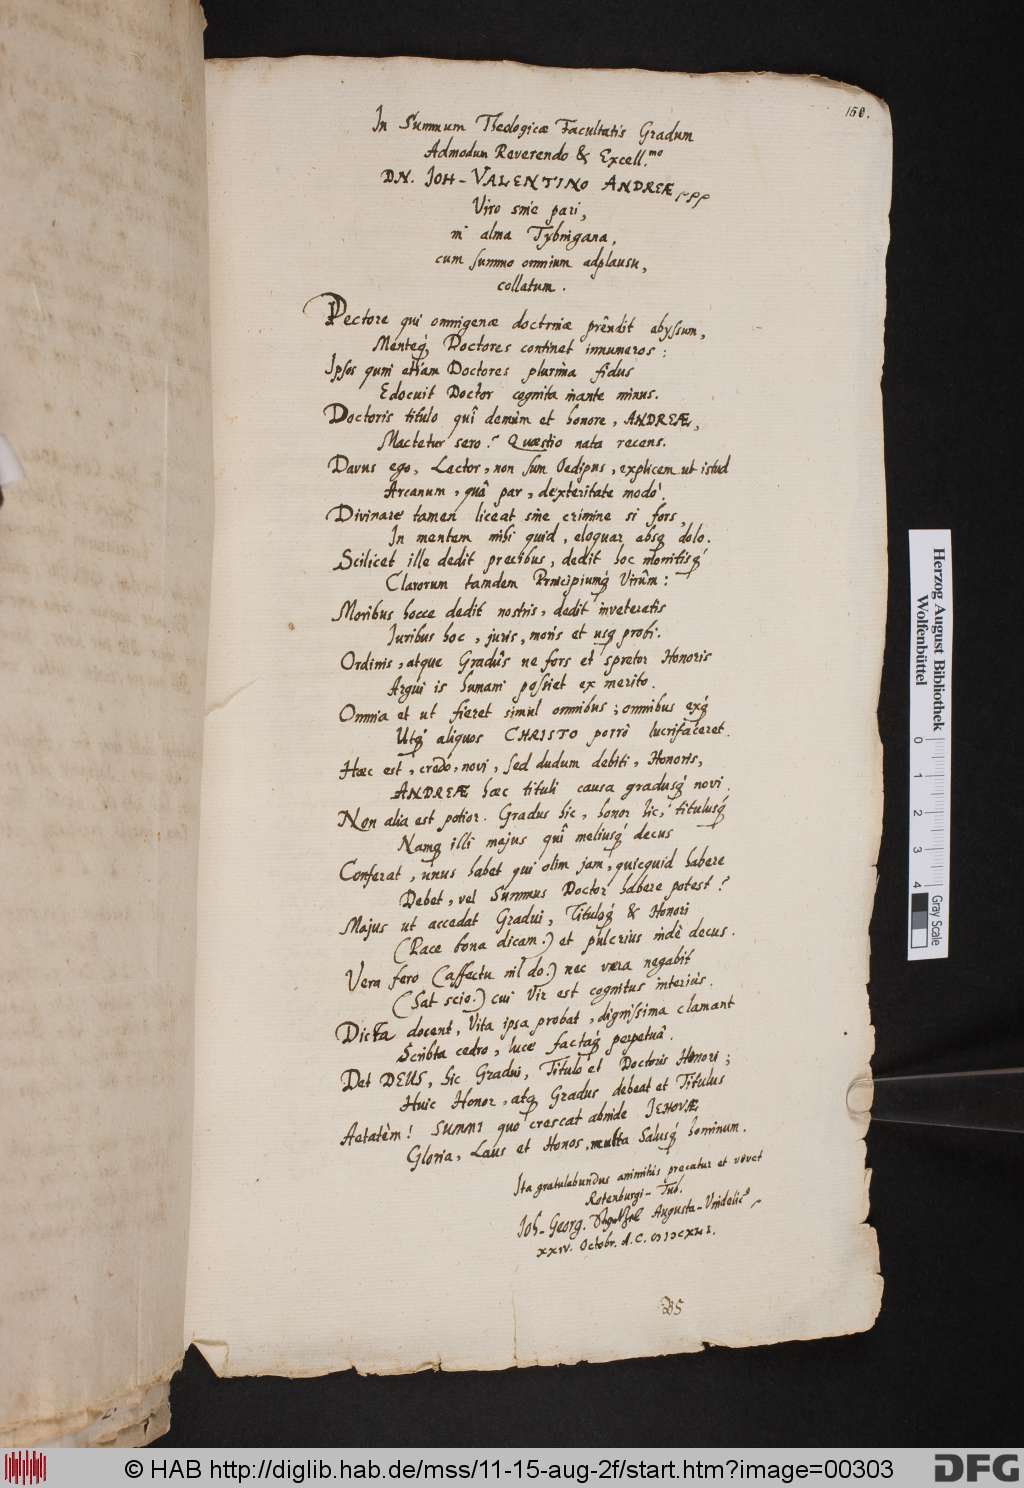 158.
In Summum Theologicæ Facultatis Gradum
Admodum Reverendo & Excell.mo
DN. JOH-VALENTINO ANDREÆ
Viro sine pari,
in alma Tybingana,
cum summo omnium adplausu,
collatum.
Pectore qui omnigenæ doctrinæ prêndit abyssum,
Menteq; Doctores continet innumeros:
Ipsos quin etiam Doctores plurima fidus
Edocuit Doctor cognita inante minus.
Doctoris titulo quî demùm et honore, ANDREÆ,
Mactetur sero? Quæstio nata recens.
Davus ego, Lector, non sum Oedipus, explicem ut istud
Arcanum, quâ par, dexteritate modò.
Divinare tamen liceat sine crimine si fors,
In mentem mihi quid, eloquar absq; dolo.
Scilicet ille dedit precibus, dedit hoc monitisq;
Clarorum tandem Principiumq; Virûm:
Moribus hocce dedit nostris, dedit inveteratis
Iuribus hoc, juris, moris et usq; probi.
Ordinis, atque Gradûs ne fors et spretor Honoris
Argui is humani possiet ex merito.
Omnia et ut fieret simul omnibus; omnibus exq;
Utq; aliquos CHRISTO porrò lucrifaceret.
Hæc est, credo, novi, sed dudum debiti, Honoris,
ANDREÆ hæc tituli causa gradusq; novi.
Non alia est potior. Gradus hic, honor hic, titulusq;
Namq; illi majus quî meliusq; decus
Conferat, unus habet qui olim jam, quicquid habere
Debet, vel Summus Doctor habere potest?
Majus ut accedat Gradui, Tituloq; & Honori
(Pace bona dicam.) et pulcrius indè decus.
Vera fero (affectu nil do.) nec vera negabit
(Sat scio.) cui Vir est cognitus interius.
Dicta docent, Vita ipsa probat, dignissima clamant
Scribta cedro, luce factaq; perpetuâ.
Det DEUS, hic Gradui, Titulo et Doctoris Honori;
Huic Honor, atq; Gradus debeat et Titulus
Aetatèm! SUMMI quo crescat abinde JEHOVÆ
Gloria, Laus et Honos, multa Salusq; hominum.
Ita gratulabundus animitùs precatur et vovet
Rotenburgi-Tub.
Joh-Georg. Augusta-Vindelico
XXIV. Octobr. A.C.
Herzog August Bibliothek
Wolfenbüttel
0 1 2 3 4
Gray Scale
© HAB http://diglib.hab.de/mss/11-15-aug-2f/start.htm?image=00303
DFG